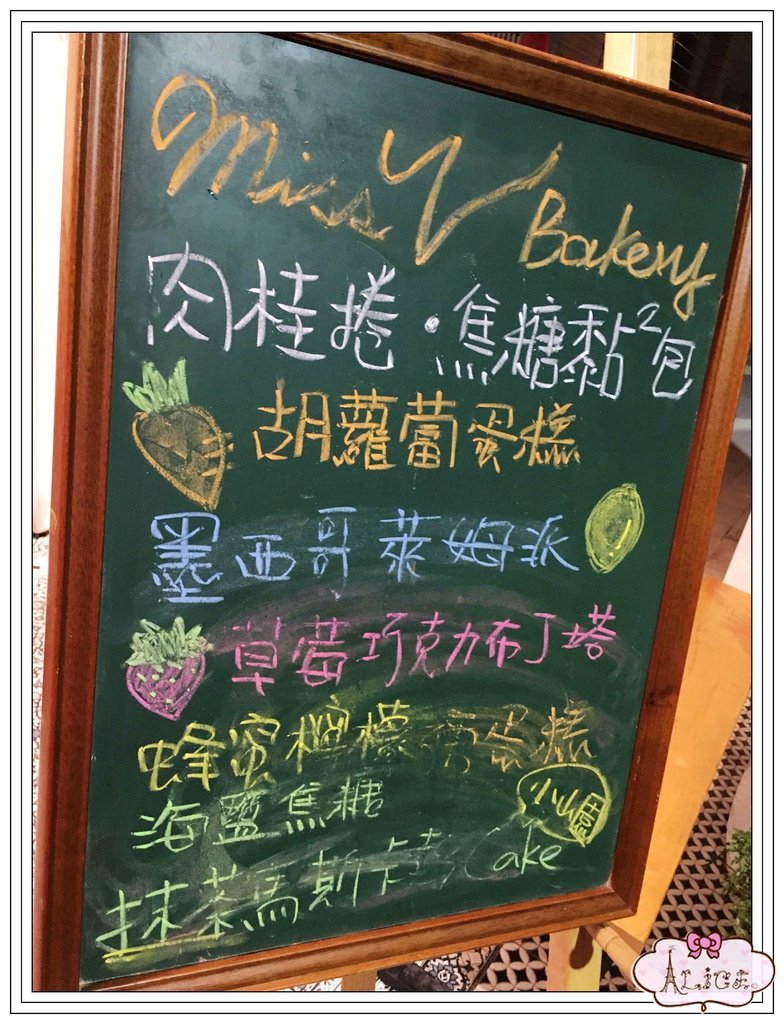 Miss V Bakery
肉桂捲・焦糖黏²包
胡蘿蔔蛋糕
墨西哥萊姆派
草莓巧克力布丁塔
蜂蜜檸檬 蛋糕
海鹽焦糖
小山園
抹茶馬斯卡彭 Cake
ALICE